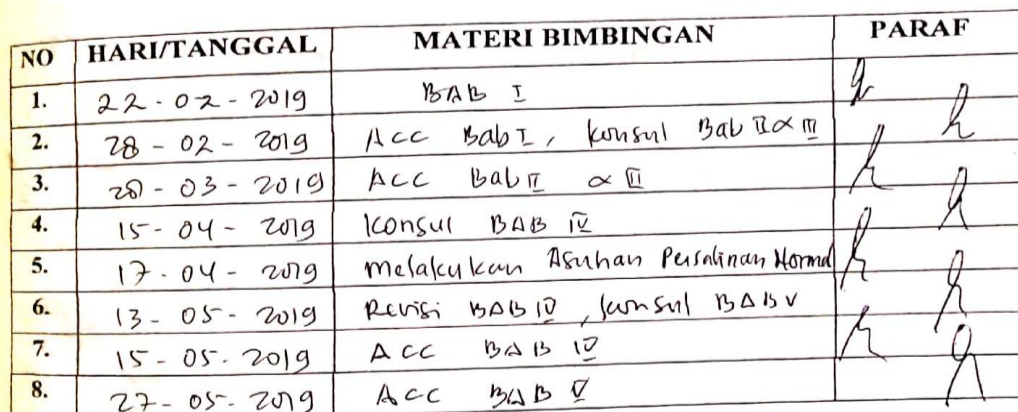 NO HARI/TANGGAL MATERI BIMBINGAN PARAF
1. 22-02-2019 BAB I
2. 28-02-2019 Acc Bab I, konsul Bab II & III
3. 20-03-2019 Acc Bab II & III
4. 15-04-2019 Konsul BAB IV
5. 17-04-2019 Melakukan Asuhan Persalinan Normal
6. 13-05-2019 Revisi BAB IV, konsul BAB V
7. 15-05-2019 ACC BAB IV
8. 27-05-2019 Acc BAB V